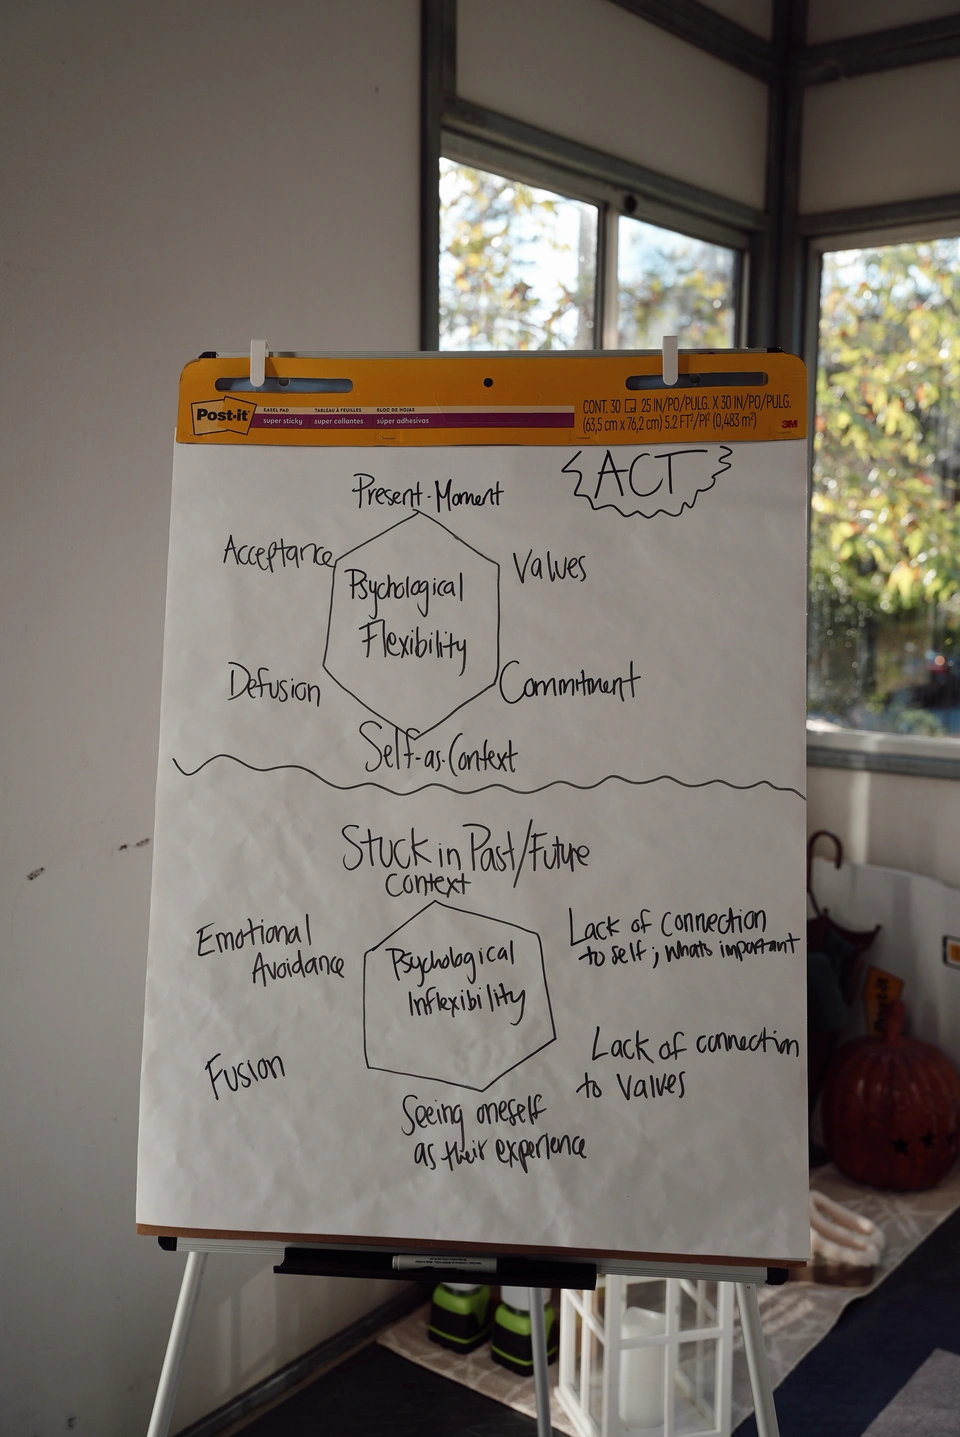 Post-it
EASEL PAD TABLEAU À FEUILLES BLOC DE HOJAS
super sticky super collantes súper adhesivas
CONT. 30 25 IN/PO/PULG. X 30 IN/PO/PULG.
(63,5 cm x 76,2 cm) 5.2 FT²/PI² (0,483 m²)
3M
ACT
Present-Moment
Acceptance
Values
Psychological
Flexibility
Defusion
Commitment
Self-as-Context
Stuck in Past/Future
Context
Emotional
Avoidance
Lack of connection
to self; whats important
Psychological
Inflexibility
Fusion
Lack of connection
to Values
Seeing oneself
as their experience
Post-it